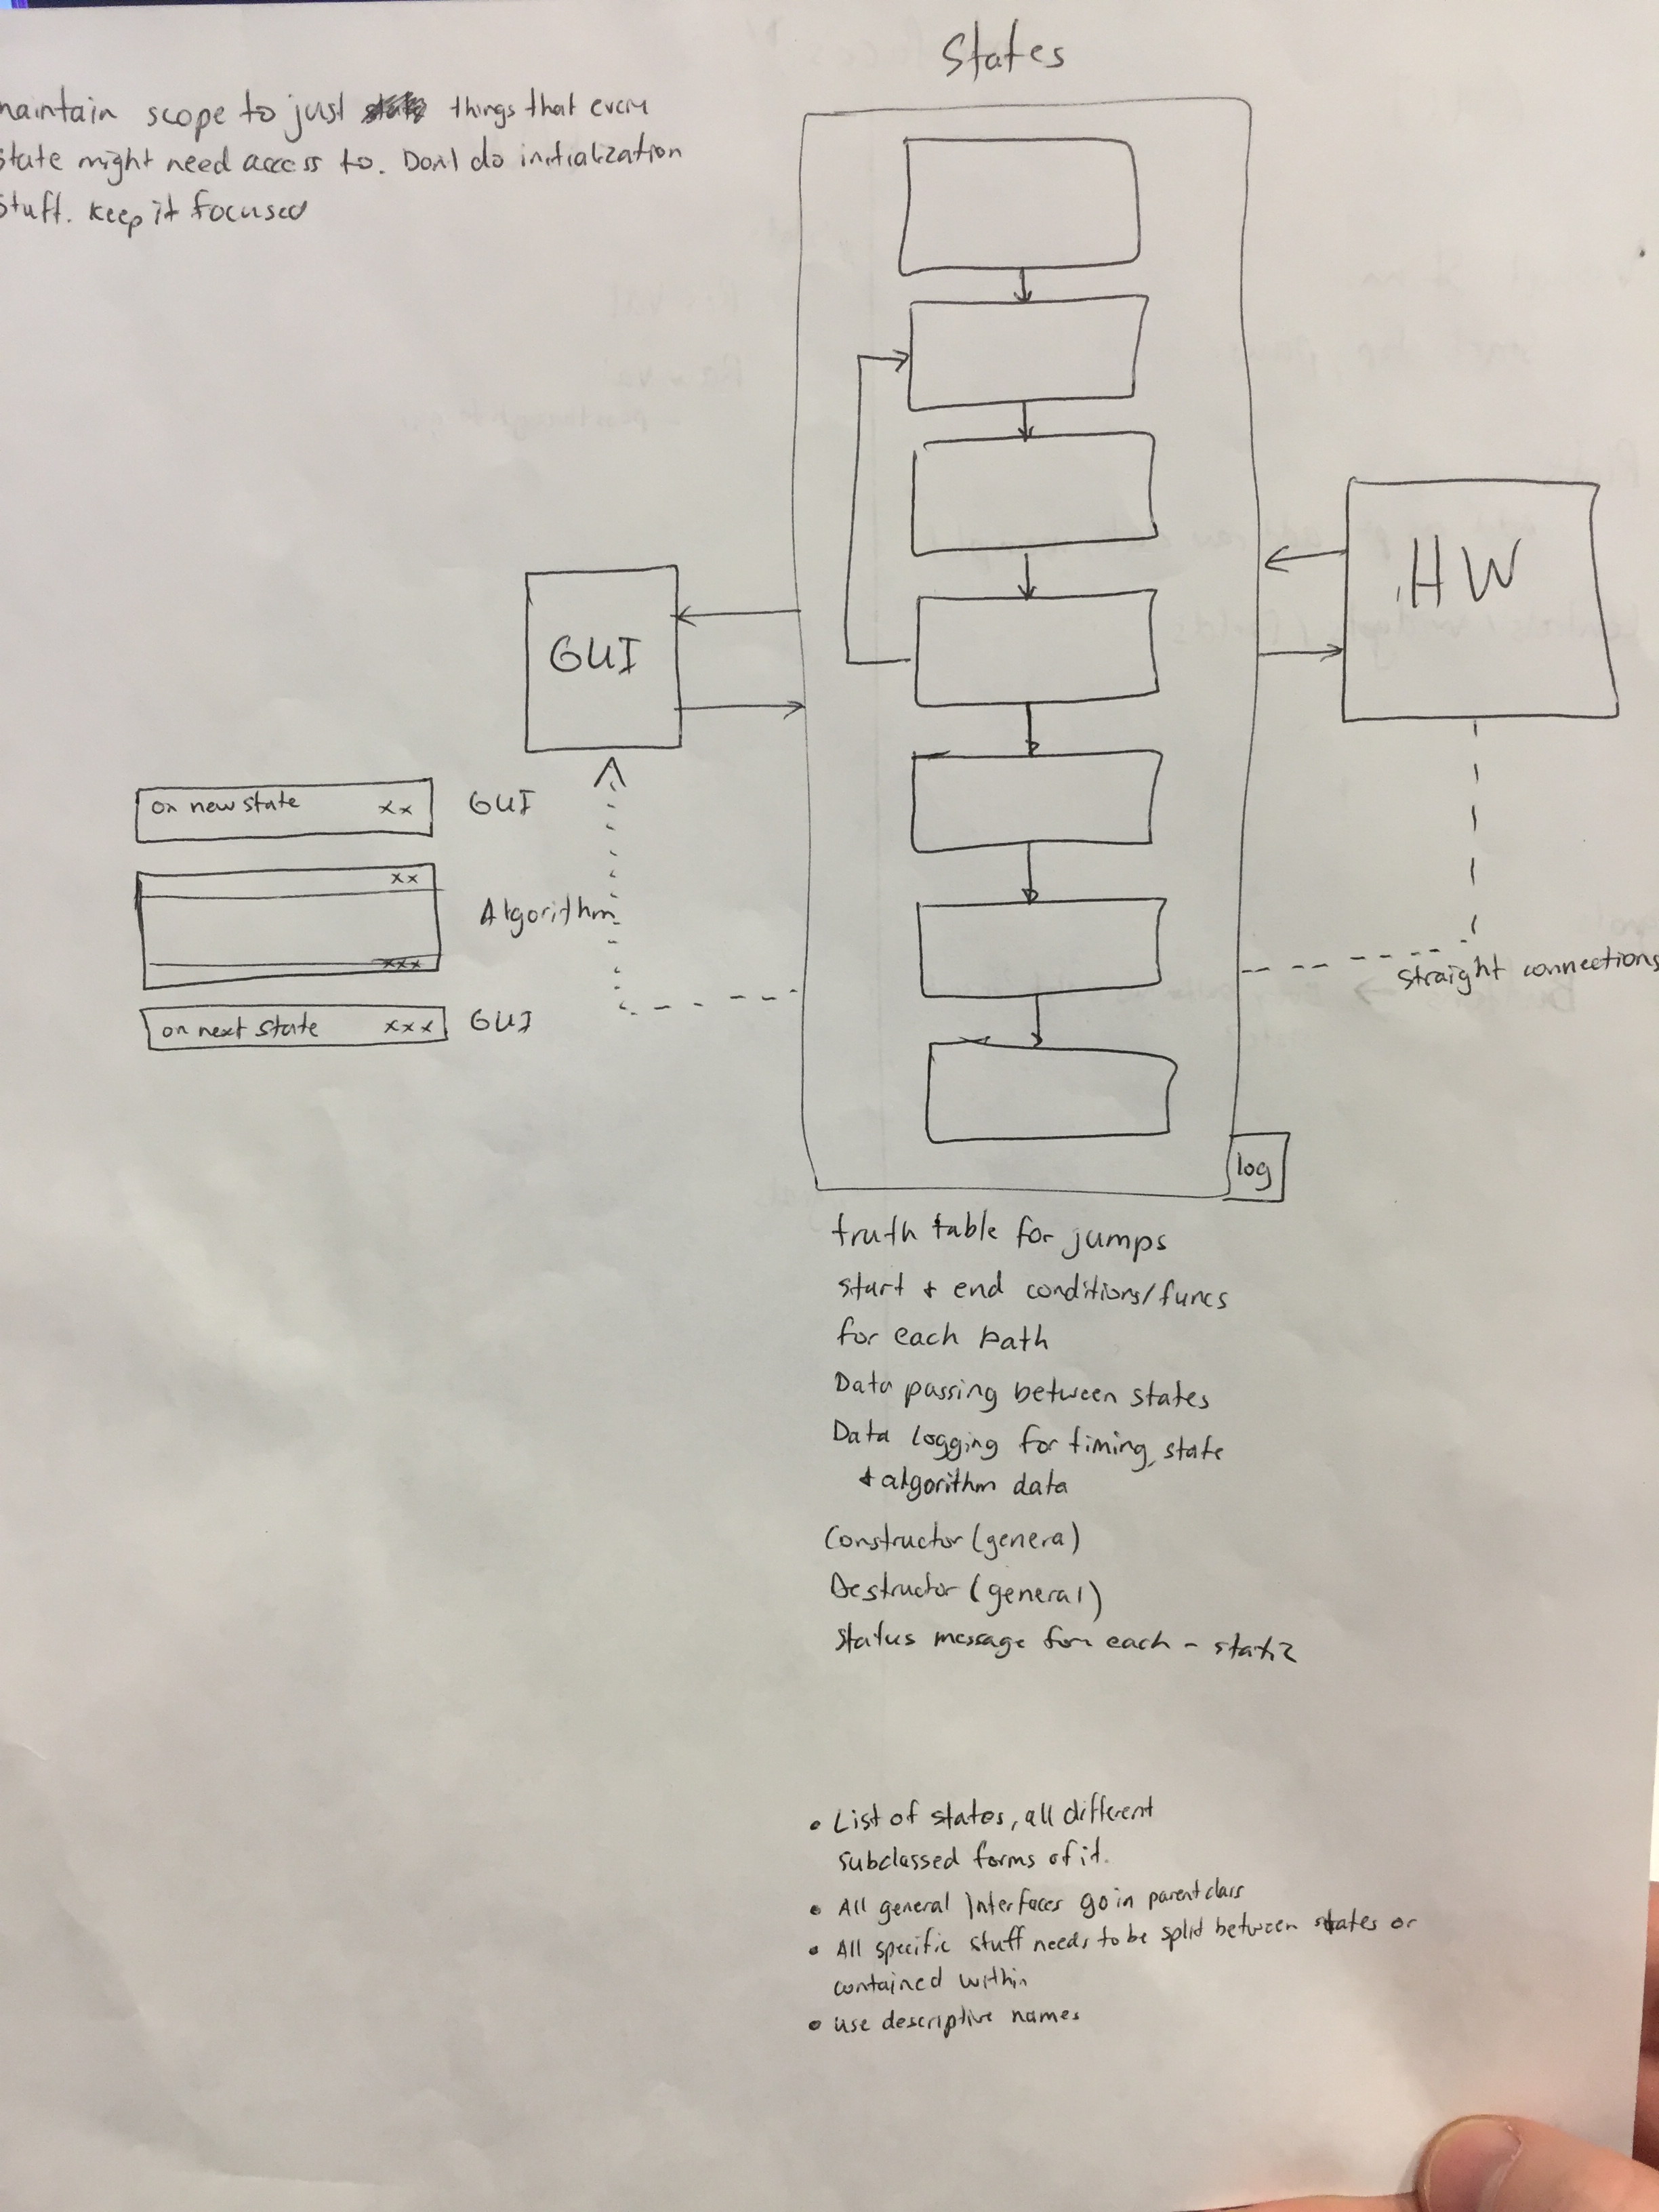 States
naintain scope to just things that every
state might need access to. Don't do initialization
stuff. Keep it focused
HW
GUI
on new state xx GUI
xx
Algorithm
xxx
on next state xxx GUI
straight connections
log
truth table for jumps
start & end conditions/funcs
for each path
Data passing between states
Data logging for timing, state
& algorithm data
Constructor (genera)
Destructor (general)
Status message for each - static
• List of states, all different
subclassed forms of it.
• All general Interfaces go in parent class
• All specific stuff needs to be split between states or
contained within
• use descriptive names